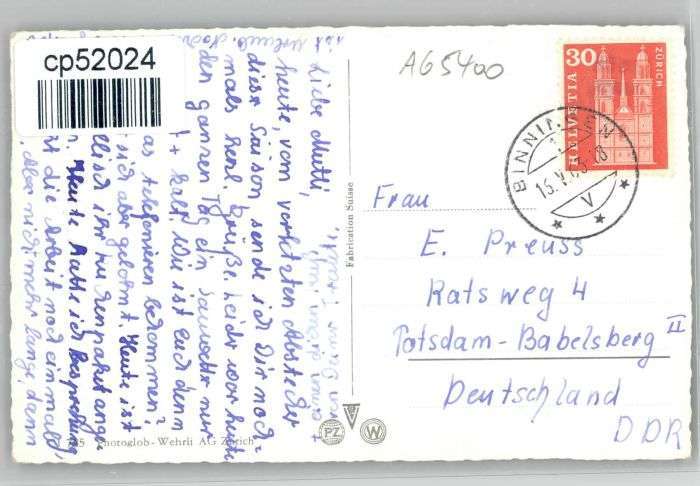 cp52024
AG5400
30
HELVETIA
ZÜRICH
BINNINGEN
1
13.V.63-18
V
Liebe Mutti,
heute, vom vorletzten Abstecher
dieser Saison, sende ich Dir noch-
mals herzl. Grüße. Leider war heute
den ganzen Tag ein Sauwetter nur
+ kalt. Wie ist Euch denn
as telefonieren bekommen?
sich aber gelohnt. Heute ist
Heute hatte ich Besprechung,
die Arbeit noch einmal
Aber nicht mehr lange, dann
Fabrication Suisse
Frau
E. Preuss
Ratsweg 4
Potsdam-Babelsberg II
Deutschland
DDR
Photoglob-Wehrli AG Zürich
PZ
W